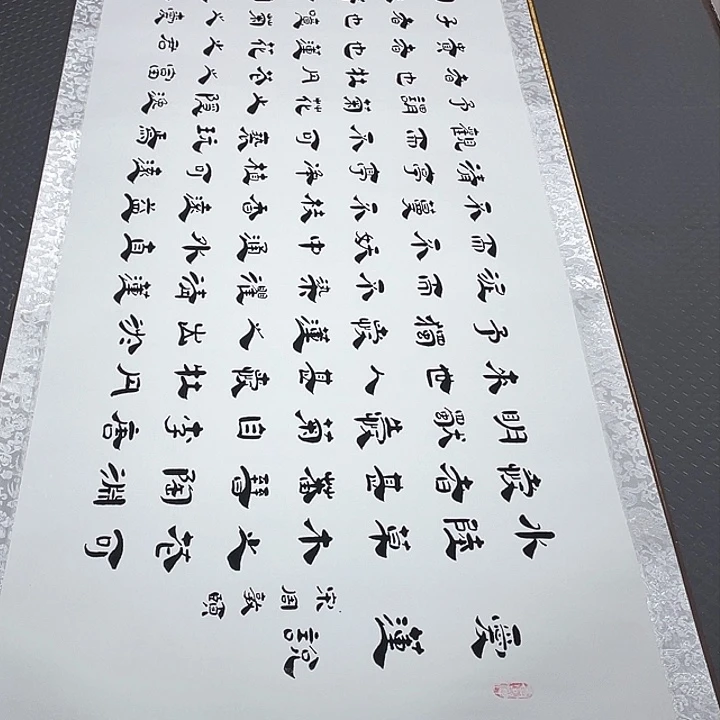 愛蓮說
宋周敦頤
水陸草木之花可
愛者甚蕃晉陶淵
明獨愛菊自李唐
來世人甚愛牡丹
予獨愛蓮之出於
泥而不染濯清蓮
而不妖中通外直
不蔓不枝香遠益
清亭亭淨植可遠
觀而不可褻玩焉
予謂菊花之隱逸
者也牡丹花之富
貴者也蓮花之君
子者也噫菊之愛